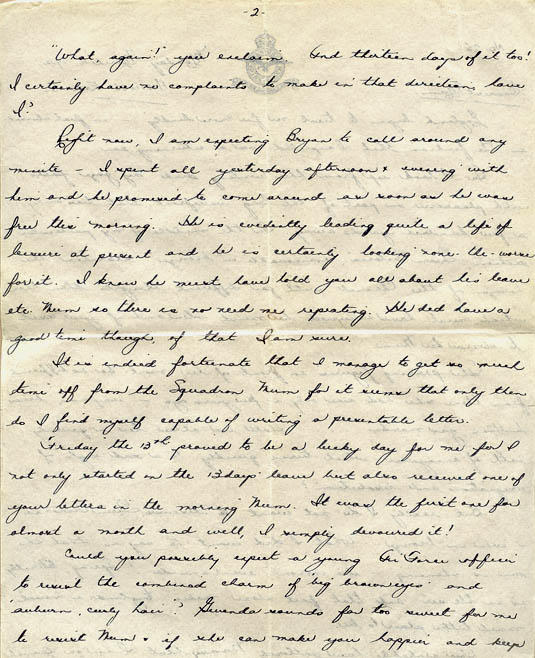 -2-
"What, again!" you exclaim. And thirteen days of it too!
I certainly have no complaints to make in that direction, have
I?
Right now, I am expecting Bryan to call around any
minute - I spent all yesterday afternoon & evening with
him and he promised to come around as soon as he was
free this morning. He is evidently leading quite a life of
leisure at present and he is certainly looking none-the-worse
for it. I know he must have told you all about his leave
etc. Mum so there is no need me repeating. He did have a
good time though, of that I am sure.
It is indeed fortunate that I manage to get so much
time off from the Squadron Mum for it seems that only then
do I find myself capable of writing a presentable letter.
'Friday the 13th proved to be a lucky day for me for I
not only started on the 13 days' leave but also received one of
your letters in the morning Mum. It was the first one for
almost a month and well, I simply devoured it!
Could you possibly expect a young Air Force officer
to resist the combined charm of 'big brown eyes' and
'auburn, curly hair'? Gwenda sounds far too sweet for me
to resist Mum & if she can make you happier and keep